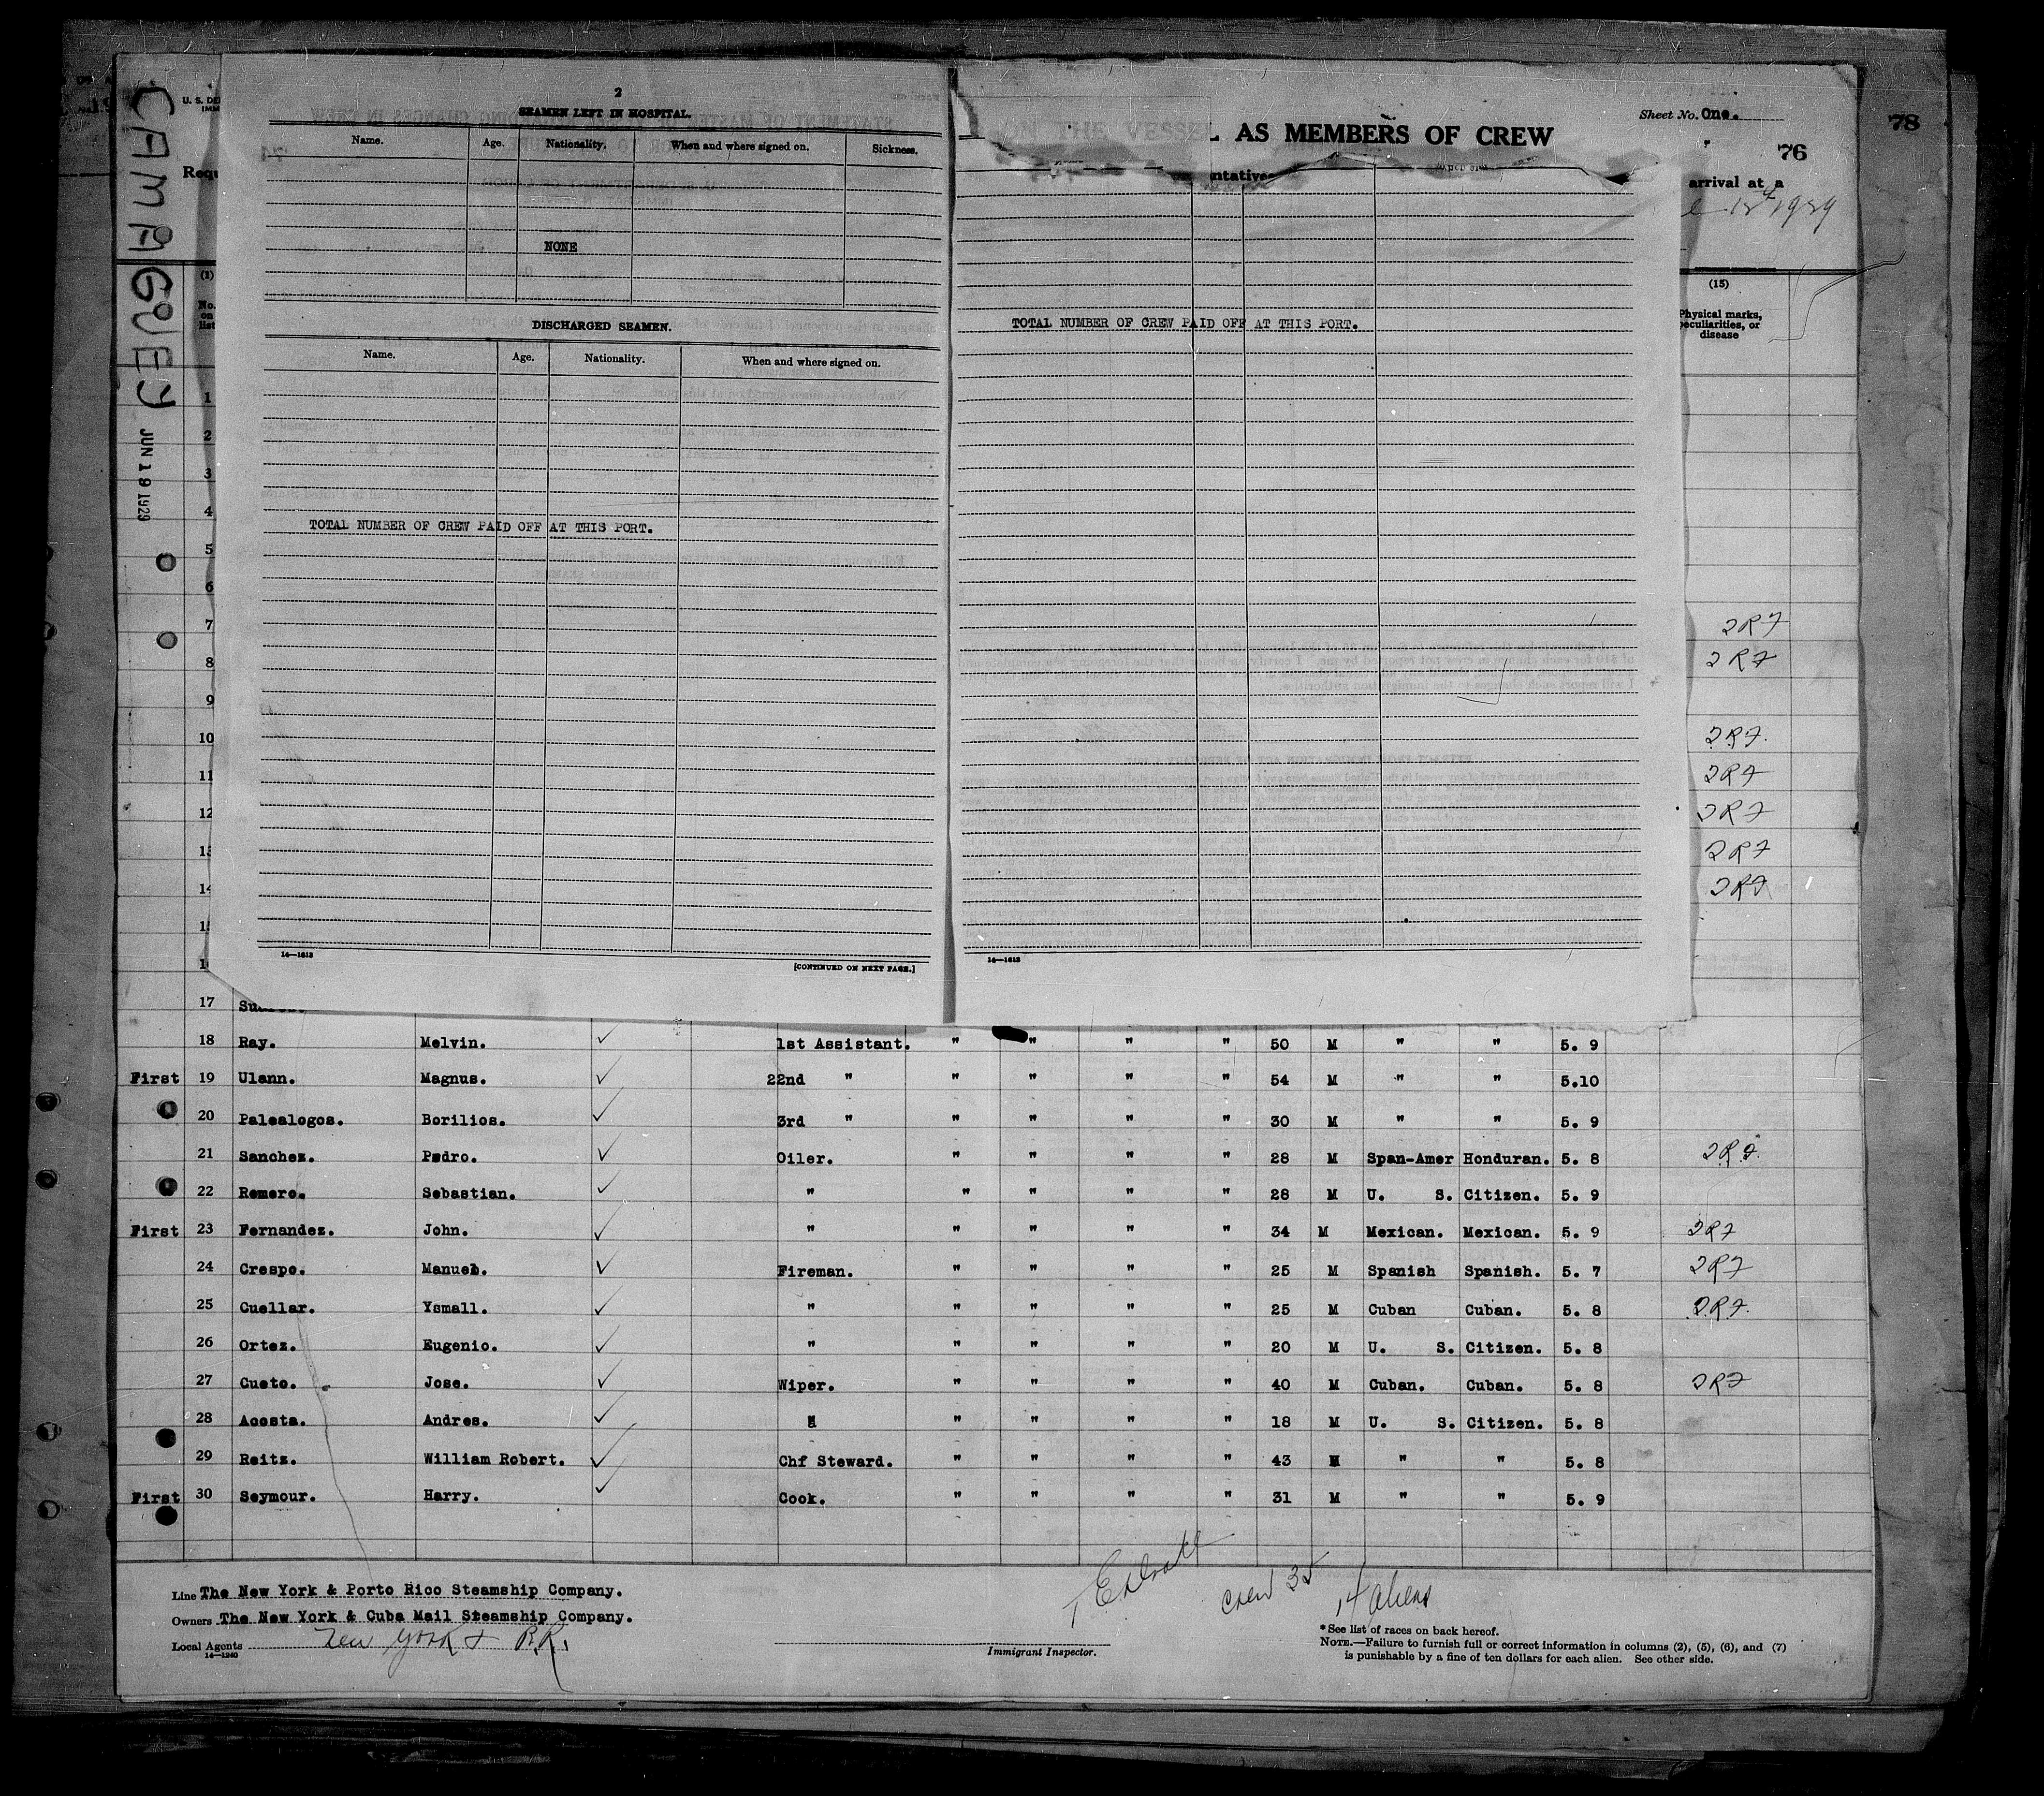 78
CAMAGUEY
JUN 19 1929
U. S. DE
Requ
(1)
No. on list
2
SEAMEN LEFT IN HOSPITAL.
Name. Age. Nationality. When and where signed on. Sickness.
NONE
DISCHARGED SEAMEN.
Name. Age. Nationality. When and where signed on.
TOTAL NUMBER OF CREW PAID OFF AT THIS PORT.
14—1613
[CONTINUED ON NEXT PAGE.]
Sheet No. One.
THE VESSEL AS MEMBERS OF CREW
76
ntative
arrival at a
1929
(15)
Physical marks, peculiarities, or disease
TOTAL NUMBER OF CREW PAID OFF AT THIS PORT.
14—1613
1
2
3
4
5
6
7 2RF
8 2RF
9
10 2RF.
11 2RF
12 2RF
13 2RF
14 2RF
17
18 Ray. Melvin. ✓ 1st Assistant. " " " " 50 M " " 5. 9
First 19 Ulann. Magnus. ✓ 22nd " " " " " 54 M " " 5.10
20 Palealogos. Borilios. ✓ 3rd " " " " " 30 M " " 5. 9
21 Sanchez. Pedro. ✓ Oiler. " " " " 28 M Span-Amer Honduran. 5. 8 2R.F.
22 Remero. Sebastian. ✓ " " " " " 28 M U. S. Citizen. 5. 9
First 23 Fernandez. John. ✓ " " " " " 34 M Mexican. Mexican. 5. 9 2RF
24 Crespo. Manuel. ✓ Fireman. " " " " 25 M Spanish Spanish. 5. 7 2RF
25 Cuellar. Ysmall. ✓ " " " " " 25 M Cuban Cuban. 5. 8 2RF.
26 Ortez. Eugenio. ✓ " " " " " 20 M U. S. Citizen. 5. 8
27 Cueto. Jose. ✓ Wiper. " " " " 40 M Cuban. Cuban. 5. 8 2RF
28 Acosta. Andres. ✓ " " " " " 18 M U. S. Citizen. 5. 8
29 Reitz. William Robert. ✓ Chf Steward. " " " " 43 M " " 5. 8
First 30 Seymour. Harry. ✓ Cook. " " " " 31 M " " 5. 9
Line The New York & Porto Rico Steamship Company.
Owners The New York & Cuba Mail Steamship Company.
Local Agents New York & P.R.
14—1240
Crew 35
14 aliens
Immigrant Inspector.
*See list of races on back hereof.
NOTE.—Failure to furnish full or correct information in columns (2), (5), (6), and (7)
is punishable by a fine of ten dollars for each alien. See other side.